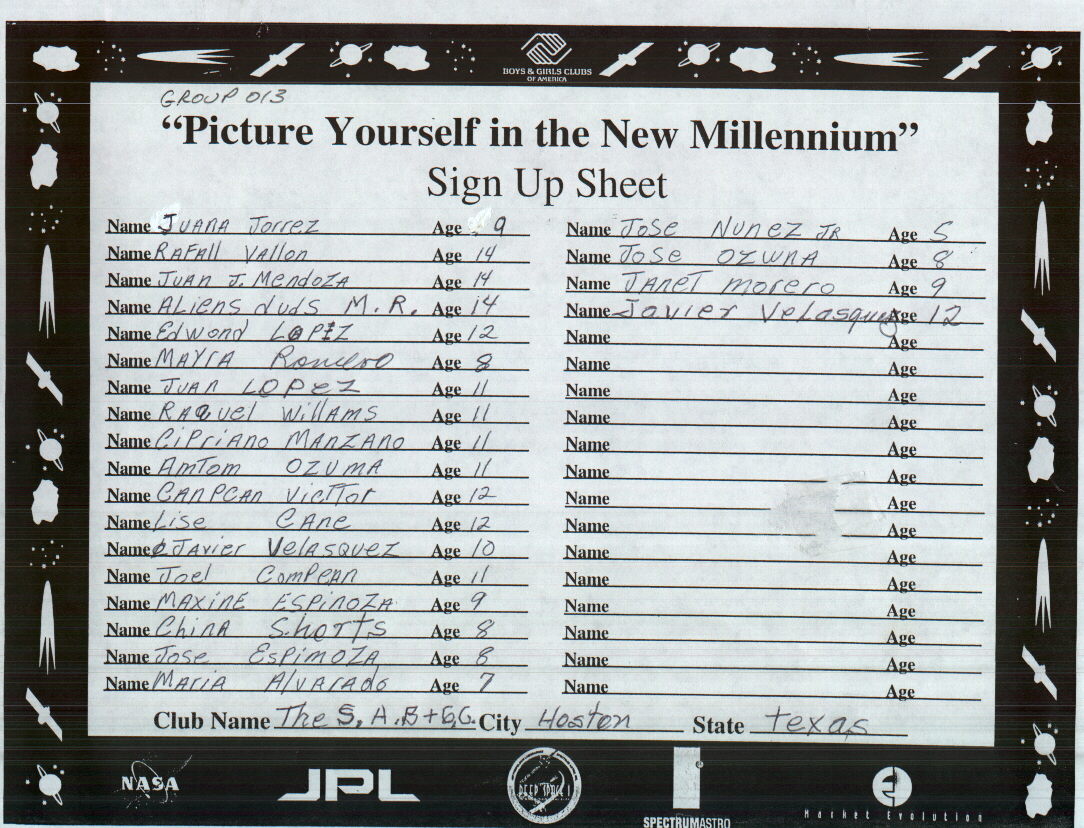 BOYS & GIRLS CLUBS
OF AMERICA
GROUP 013
“Picture Yourself in the New Millennium”
Sign Up Sheet
Name Juana Torrez Age 9
Name Rafall Vallon Age 14
Name Juan J. Mendoza Age 14
Name Aliens duds M.R. Age 14
Name Edwond Lopiz Age 12
Name Mayra Romero Age 8
Name Juan Lopez Age 11
Name Raquel Willams Age 11
Name Cipriano Manzano Age 11
Name Amtom Ozuma Age 11
Name Canpcan Victtor Age 12
Name Lise Cane Age 12
Name Javier Velasquez Age 10
Name Joel Compean Age 11
Name Maxine Espinoza Age 9
Name China Shorts Age 8
Name Jose Espimoza Age 8
Name Maria Alvarado Age 7
Name Jose Nunez JR Age 5
Name Jose Ozwna Age 8
Name Janet morero Age 9
Name Javier Velasquez Age 12
Name Age
Name Age
Name Age
Name Age
Name Age
Name Age
Name Age
Name Age
Name Age
Name Age
Name Age
Name Age
Name Age
Name Age
Club Name The S.A.B+G.C. City Hoston State texas
NASA
JPL
DEEP SPACE 1
SPECTRUMASTRO
Market Evolution